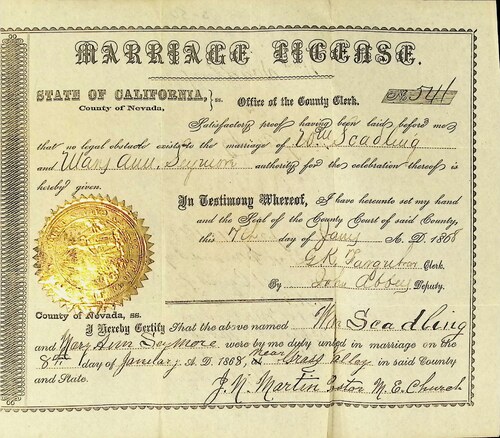 MARRIAGE LICENSE.
STATE OF CALIFORNIA, } ss. Office of the County Clerk. No. 541
County of Nevada,
Satisfactory proof having been laid before me
that no legal obstacle exists to the marriage of Wm Scadling
and Mary Ann. authority for the celebration thereof is
hereby given.
In Testimony Whereof, I have hereunto set my hand
and the Seal of the County Court of said County,
this 7th day of Jany A. D. 1868
G.K. Farquhar Clerk.
By John Deputy.
County of Nevada, ss.
I Hereby Certify That the above named Wm Scadling
and Mary Ann Seymore were by me duly united in marriage on the
8th day of January A. D. 1868, Near Grass Valley in said County
and State.
J. N. Martin Pastor M. E. Church